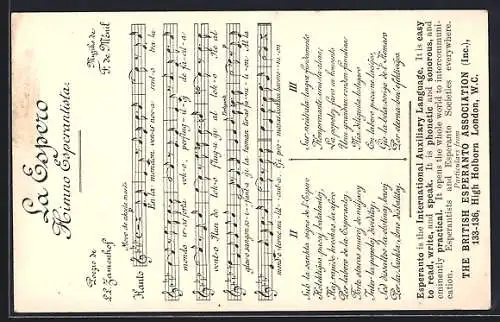 La Espero
Himno Esperantista.
Poezio de
L.L. Zamenhof
Muziko de
F. de Ménil
Kanto
En la mondon venis nova sento, tra la
mondo iras forta voko, per flugiloj de facila
vento Nun de loko flugu ĝi al loko. Ne al
glavo sangon soifanta ĝi la homan tiras familion. Al la
mondo eterne militanta Ĝi promesas sanktan harmonion
II
Sub la sankta signo de l'Espero
Kolektiĝas pacaj batalantoj,
Kaj rapide kreskas la afero
Per laboro de la Esperantoj.
Forte staras muroj de miljaroj
Inter la popoloj dividitaj;
Sed dissaltos la obstinaj baroj
Per la Sankta Amo disbatitaj.
III
Sur neŭtrala lingva fundamento
Komprenante unu la alian,
La popoloj faros en konsento
Unu grandan rondon familian
Nia diligenta kolegaro
En laboro paca ne laciĝos,
Ĝis la bela sonĝo de l' Homaro
Por eterna ben' efektiviĝos.
Esperanto is the International Auxiliary Language. It is easy
to read, write, and speak. It is phonetic and sonorous, and
eminently practical. It opens the whole world to intercommuni-
cation. Esperantists and Esperanto Societies everywhere.
Particulars from
THE BRITISH ESPERANTO ASSOCIATION (Inc.),
133-136, High Holborn London, W.C.